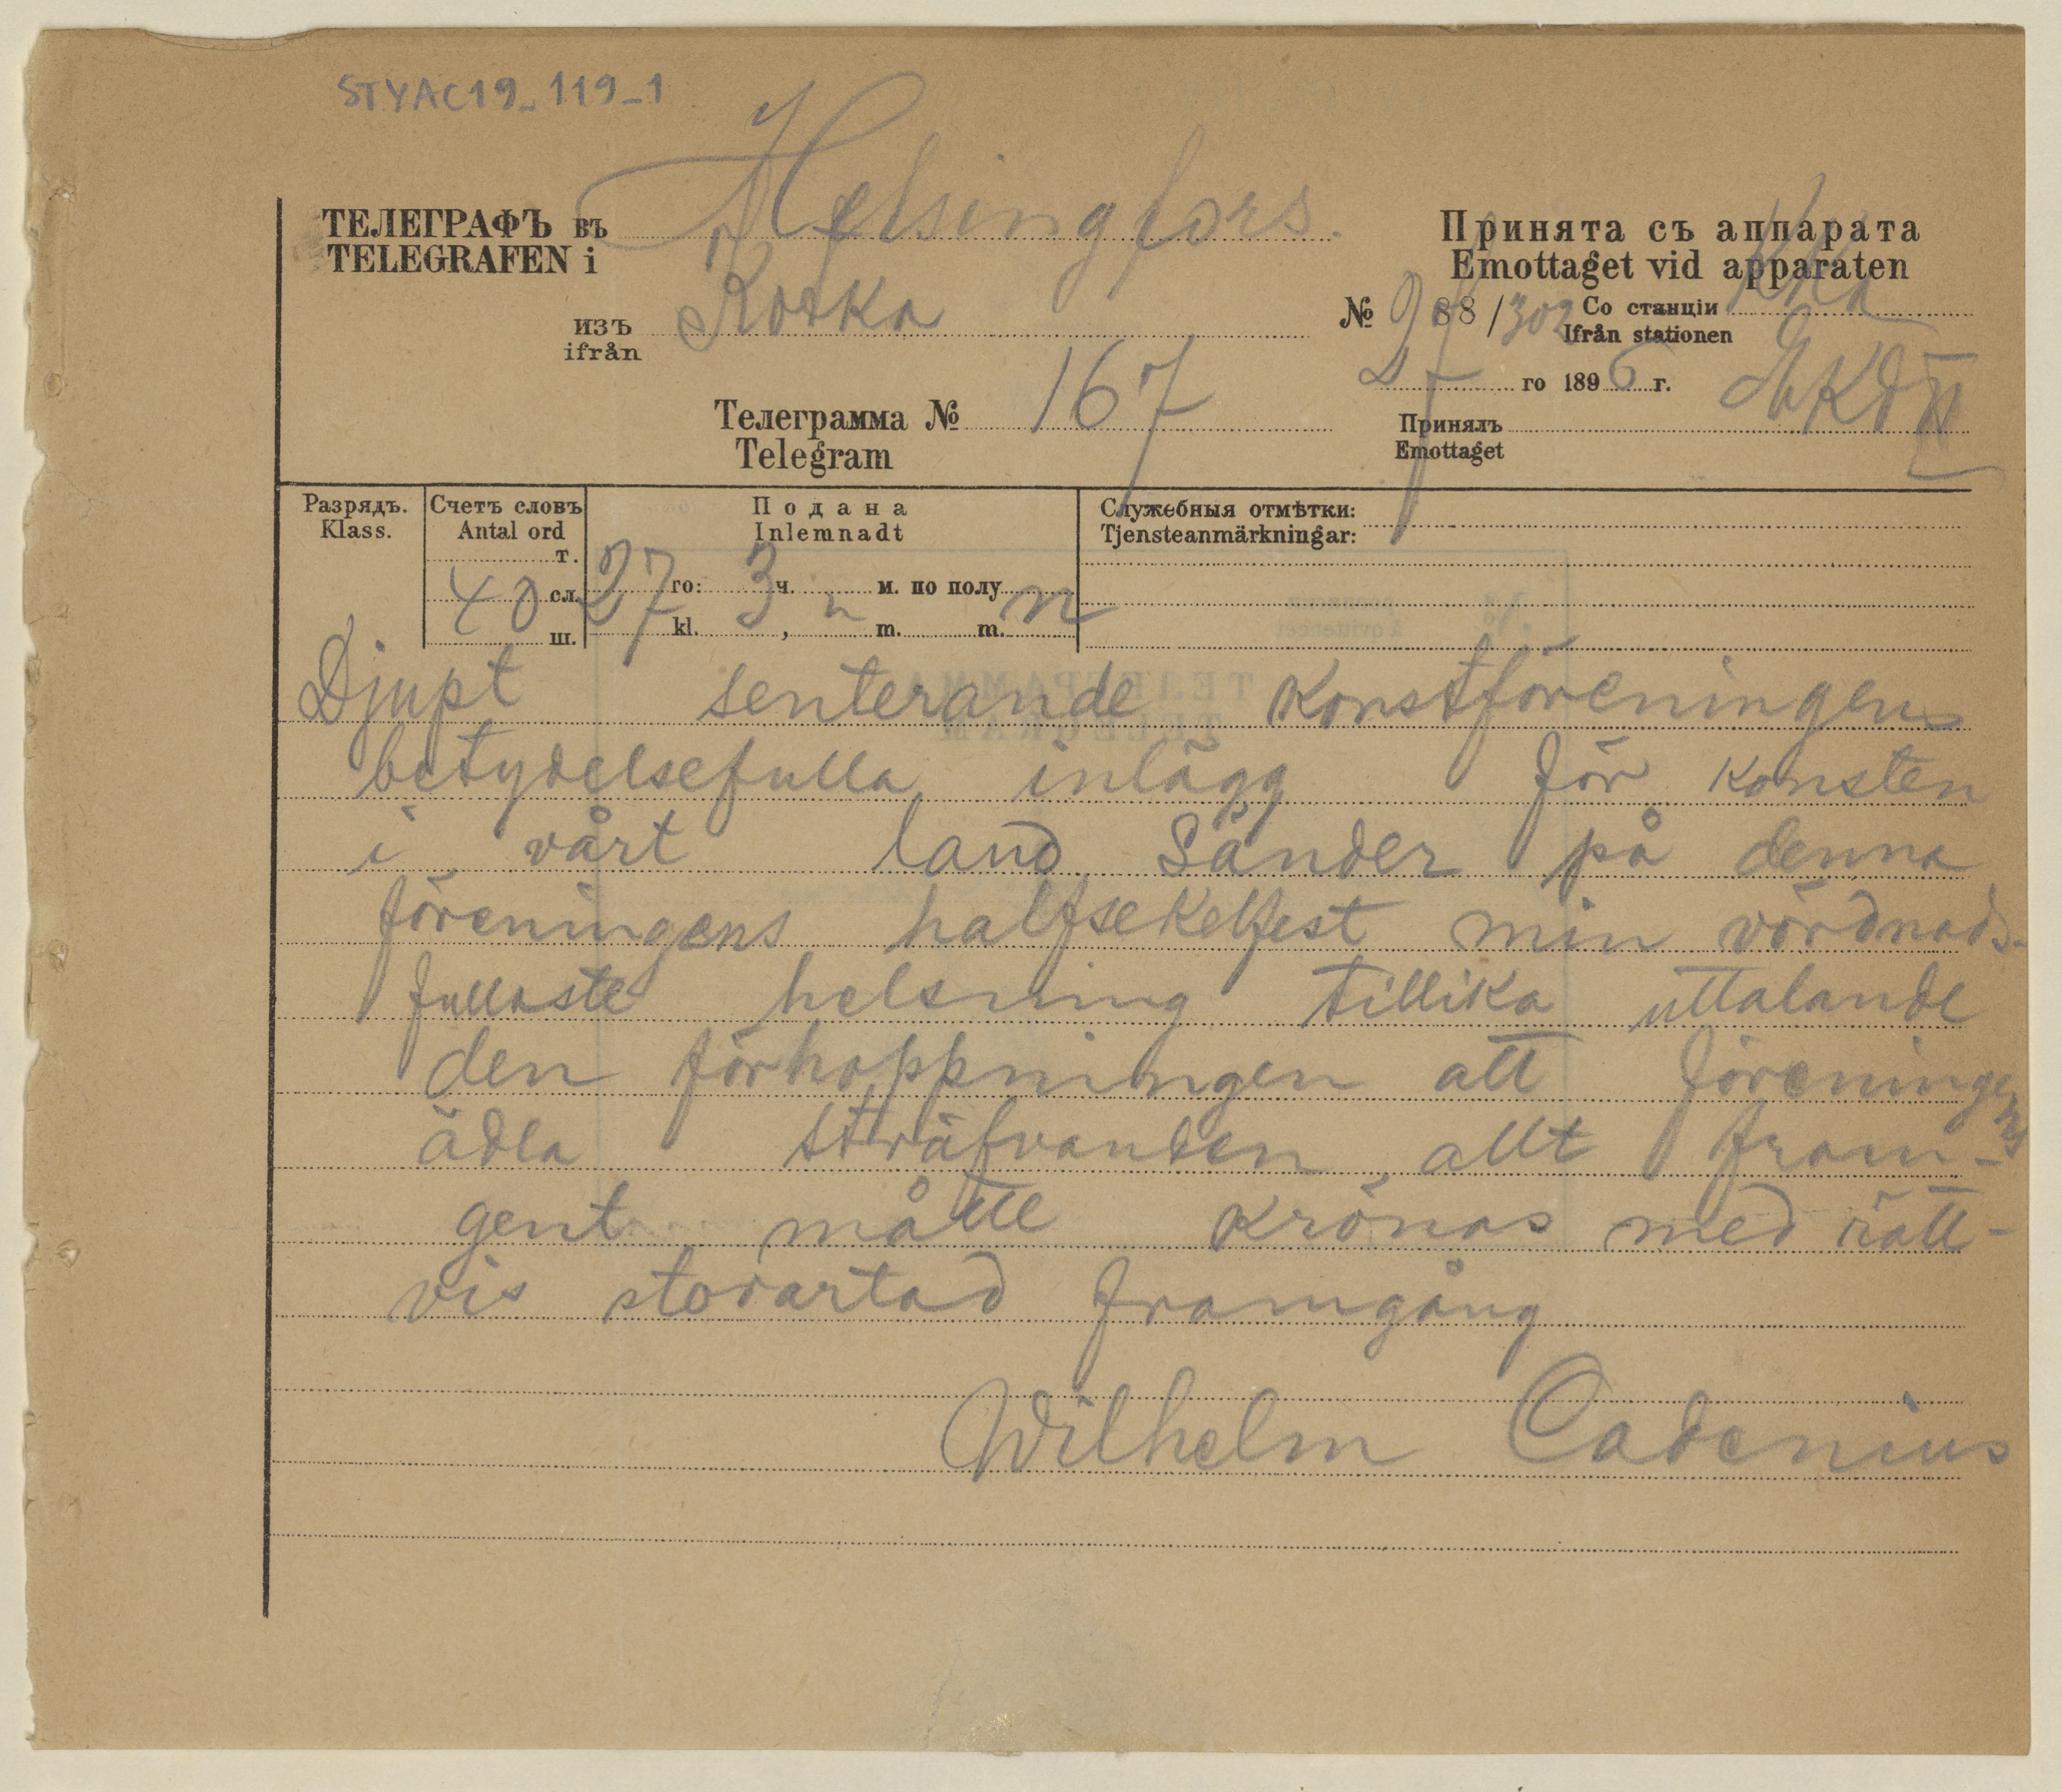 STYAC19_119_1
Helsingfors.
ТЕЛЕГРАФЪ въ
TELEGRAFEN i
Принята съ аппарата
Emottaget vid apparaten
изъ
ifrån
Kotka
№ 88/302 Со станціи Kka
Ifrån stationen
27 го 1896 г.
Телеграмма № 167
Telegram
Принялъ
Emottaget
Разрядъ.
Klass.
Счетъ словъ
Antal ord
т.
40 сл.
ш.
Подана
Inlemnadt
27 го: 3 ч. м. по полу n
kl. , m. m.
Служебныя отмѣтки:
Tjensteanmärkningar:
Djupt senterande Konstföreningens
betydelsefulla inlägg för konsten
i vårt land Sänder på denna
föreningens halfsekelfest min vördnads-
fullaste helsning tillika uttalande
den förhoppningen att föreningens
ädla sträfvanden, allt fram-
gent måtte Krönas med rätt-
vis storartad framgång
Wilhelm Cadenius